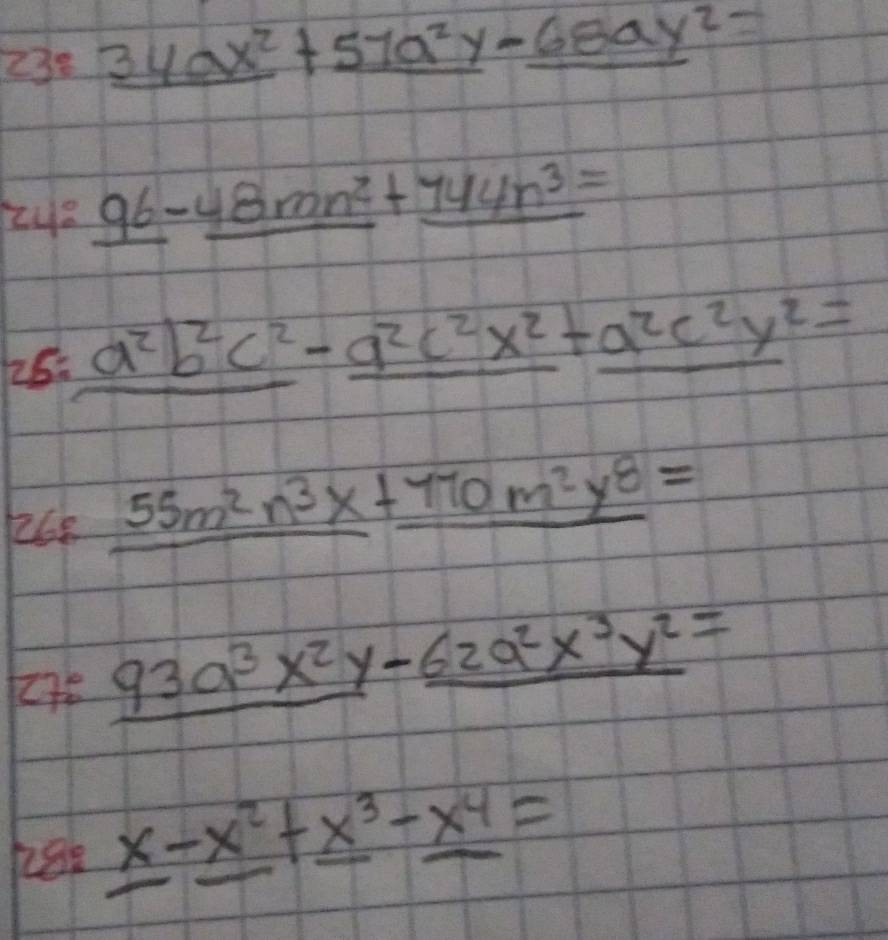 23: 34ax² + 51a²y - 68ay² =
24: 96 - 48mn² + 144n³ =
25: a²b²c² - a²c²x² + a²c²y² =
26: 55m²n³x + 110m²y⁸ =
27: 93a³x²y - 62a²x³y² =
28: x - x² + x³ - x⁴ =